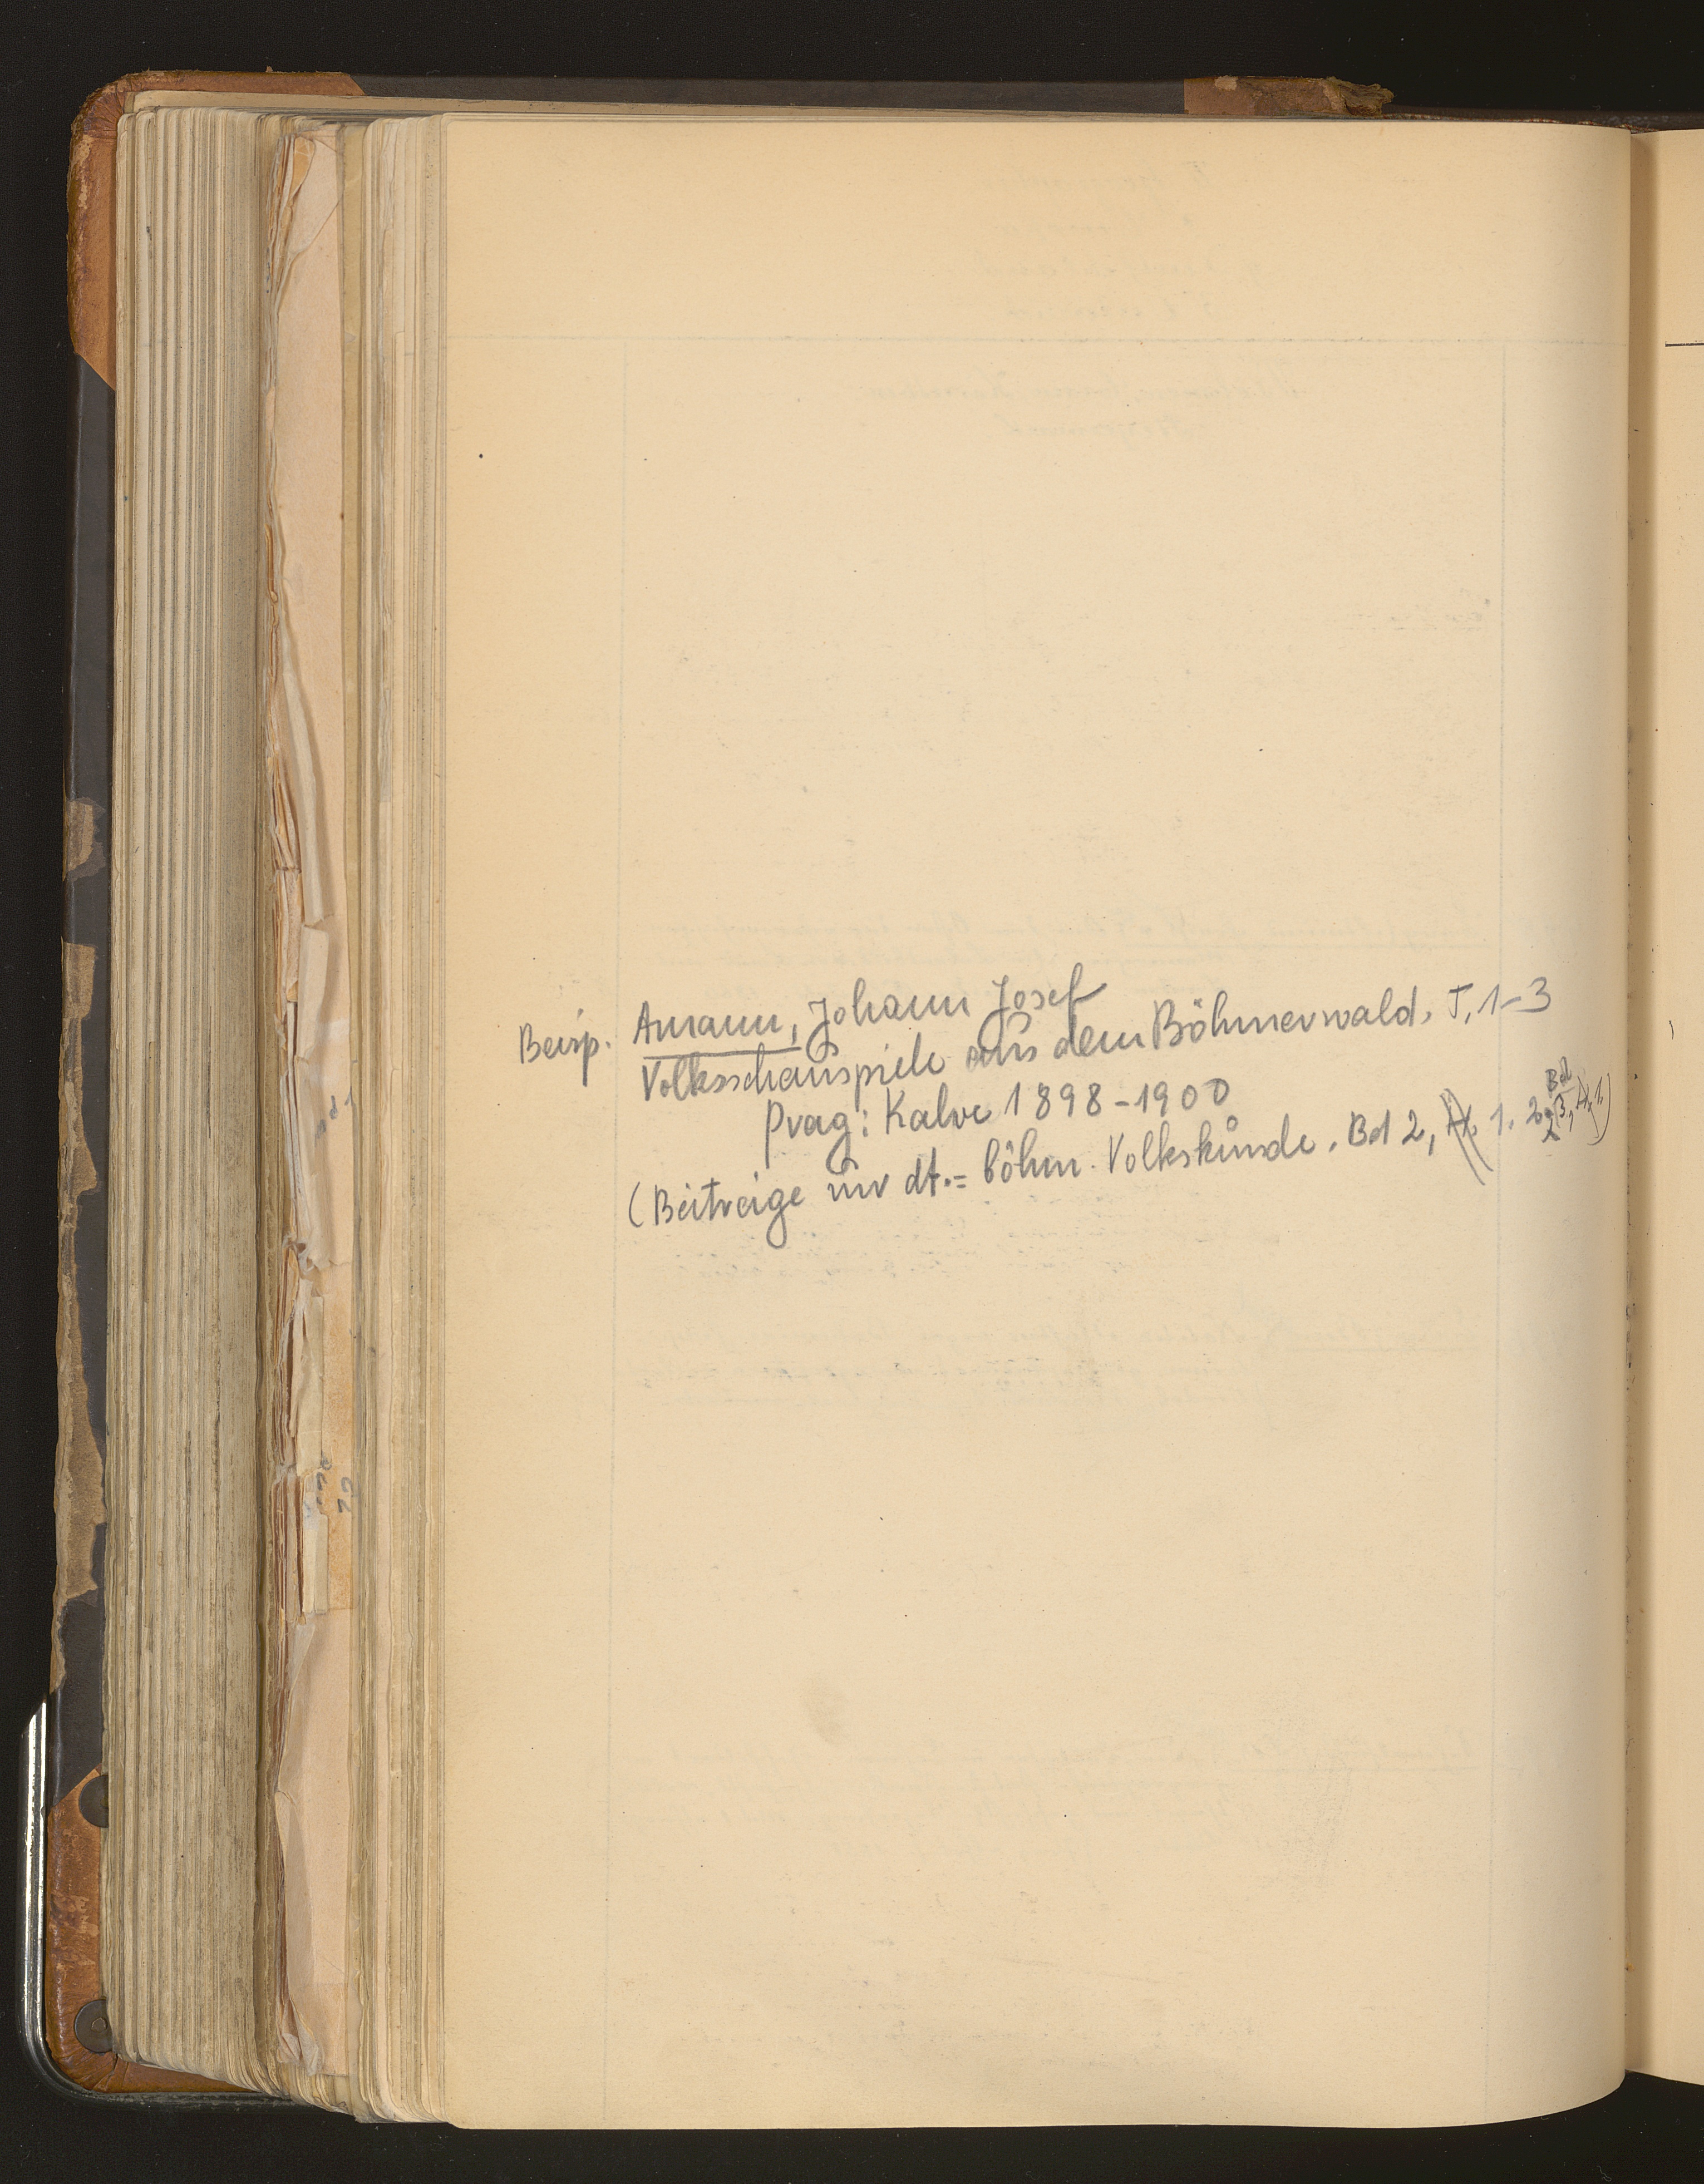 Beisp. Amann, Johann Josef
Volksschauspiele aus dem Böhmerwald. T. 1-3
Prag: Kalve 1898-1900
(Beiträge zur dt.= böhm. Volkskunde. Bd 2, 1. 2; Bd 3, H. 1.)